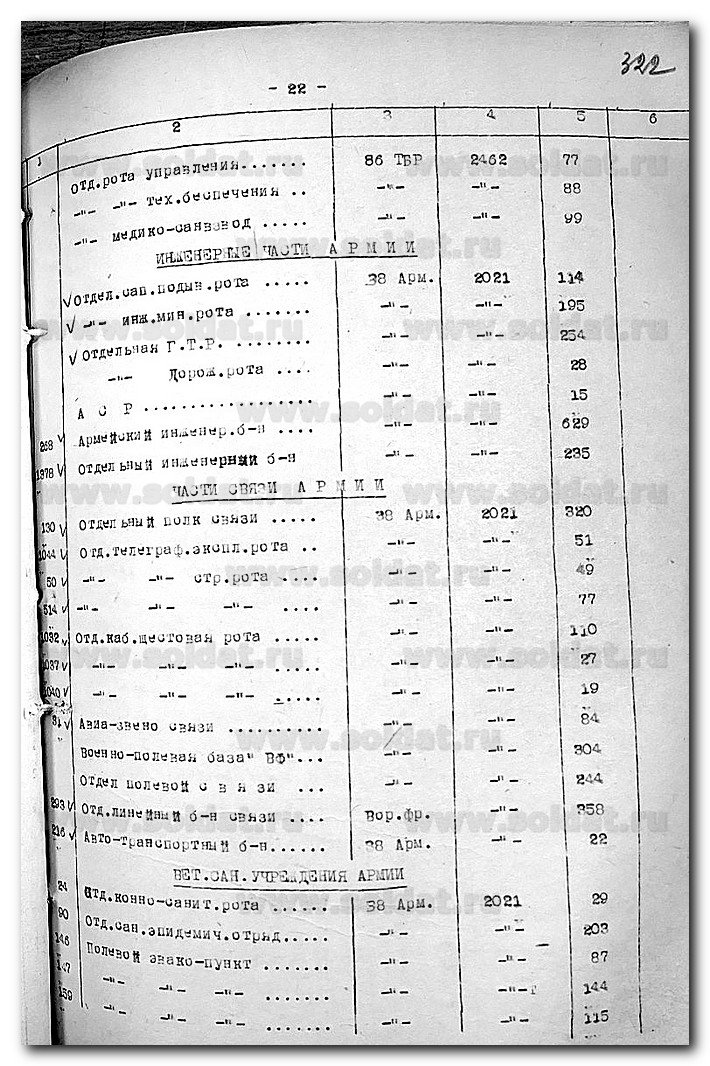 322
- 22 -
1 2 3 4 5 6
Отд.рота управления....... 86 ТБР 2462 77
-"- -"- тех.беспечения .. -"- -"- 88
-"- медико-санвзвод ..... -"- -"- 99
ИНЖЕНЕРНЫЕ ЧАСТИ А Р М И И
√ Отдел.сап.подын.рота ..... 38 Арм. 2021 114
√ -"- инж.мин.рота ....... -"- -"- 195
√ Отдельная Г.Т.Р. ......... -"- -"- 254
-"- Дорож.рота .... -"- -"- 28
А С Р .................. -"- -"- 15
268 √ Армейский инженер.б-н .... -"- -"- 629
1378 √ Отдельный инженерный б-н -"- -"- 235
ЧАСТИ СВЯЗИ А Р М И И
130 √ Отдельный полк связи ..... 38 Арм. 2021 320
1044 √ Отд.телеграф.экспл.рота .. -"- -"- 51
50 √ -"- -"- стр.рота .... -"- -"- 49
514 √ -"- -"- -"- .... -"- -"- 77
1032 √ Отд.каб.шестовая рота ..... -"- -"- 110
1037 √ -"- -"- -"- ..... -"- -"- 27
1040 √ -"- -"- -"- ..... -"- -"- 19
√ Авиа-звено связи .......... -"- -"- 84
Военно-полевая база" ВФ"... -"- -"- 304
Отдел полевой с в я зи ... -"- -"- 244
293 √ Отд.линейный б-н связи .... Вор.фр. -"- 358
216 √ Авто-транспортный б-н...... 38 Арм. -"- 22
ВЕТ.САН.УЧРЕЖДЕНИЯ АРМИИ
24 Отд.конно-санит.рота ...... 38 Арм. 2021 29
90 Отд.сан.эпидемич.отряд..... -"- -"- 203
146 Полевой эвако-пункт ....... -"- -"- 87
147 -"- -"- -"- ....... -"- -"- 144
159 -"- -"- -"- ....... -"- -"- 115
www.soldat.ru